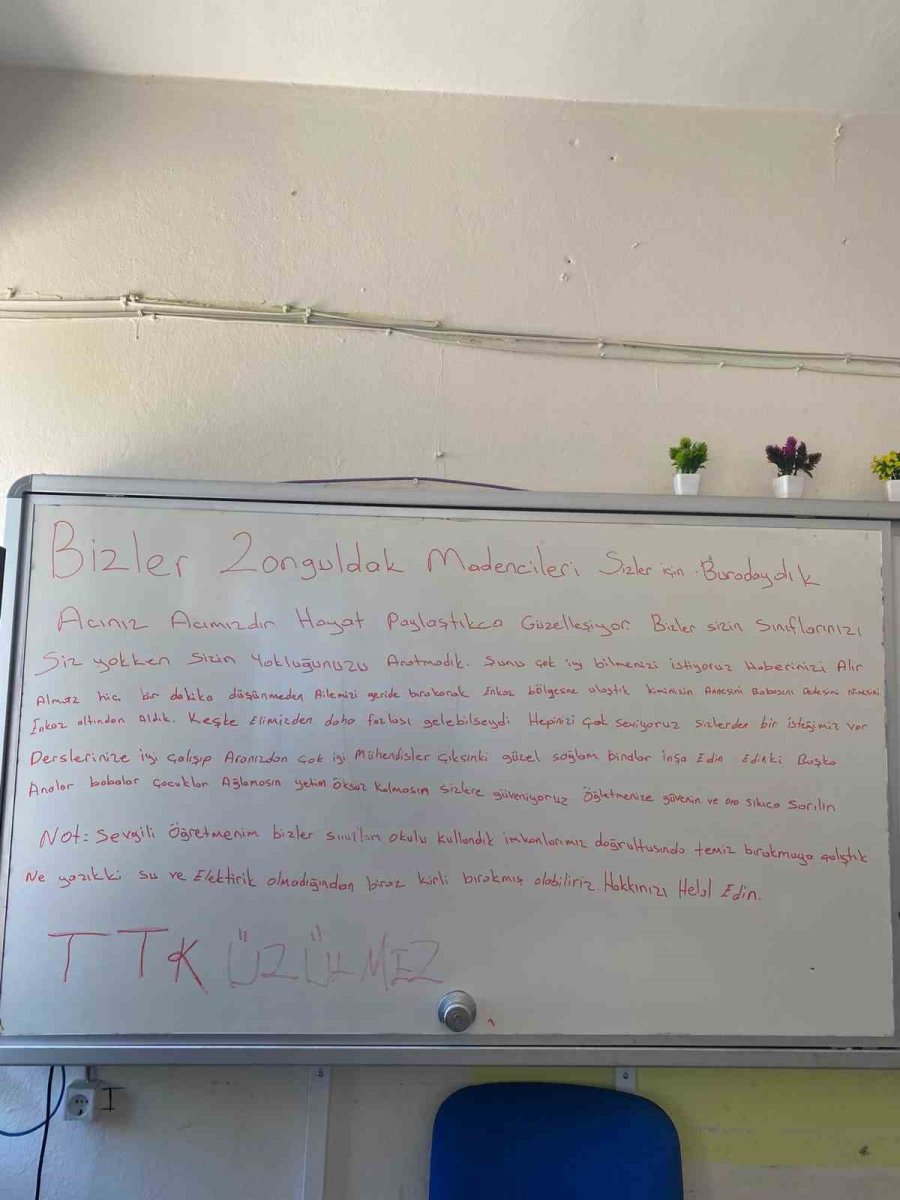 Bizler Zonguldak Madencileri Sizler için Buradaydık
Acınız Acımızdır Hayat Paylaştıkca Güzelleşiyor Bizler sizin sınıflarınızı
Siz yokken Sizin Yokluğunuzu Aratmadık. Şunu çok iyi bilmenizi istiyoruz Haberinizi Alır
Almaz hiç bir dakika düşünmeden Ailemizi geride bırakarak Enkaz bölgesine ulaştık kiminizin Annesini Babasını Dedesini Ninesini
Enkaz altından Aldık. Keşke Elimizden daha fazlası gelebilseydi Hepinizi çok seviyoruz sizlerden bir isteğimiz var
Derslerinize iyi çalışıp Aranızdan çok iyi Mühendisler çıksınki güzel sağlam binalar inşa Edin Edinki Başka
Analar babalar çocuklar Ağlamasın yetim Öksüz kalmasın sizlere güveniyoruz Öğretmenize güvenin ve ona sıkıca sarılın
Not: Sevgili Öğretmenim bizler sınıfları okulu kullandık imkanlarımız doğrultusunda temiz bırakmaya çalıştık
Ne yazıkki su ve Elektirik olmadığından biraz kirli bırakmış olabiliriz. Hakkınızı Helal Edin.
TTK ÜZÜLMEZ